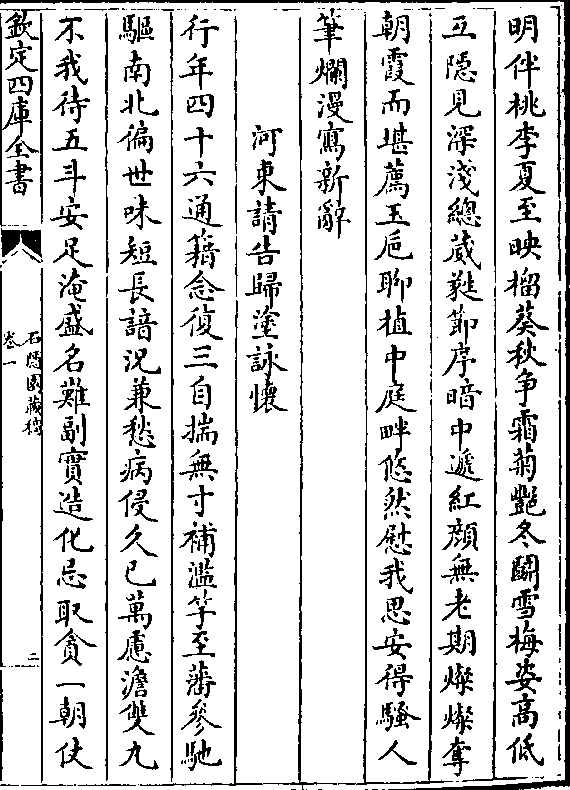 明伴桃李夏至映榴葵秋争霜菊艷冬鬬雪梅姿高低
互隱見深淺總葳蕤節序暗中遞紅顔無老期燦燦奪
朝霞而堪薦玉巵聊植中庭畔悠然慰我思安得騷人
筆爛漫寫新辭
河東請告歸塗詠懷
行年四十六通籍念復三自揣無寸補濫竽至藩參馳
驅南北偏世味短長諳况兼愁病侵久已萬慮澹雙丸
不我待五斗安足淹盛名難副實造化忌取貪一朝仗
欽定四庫全書
石隱園藏稿
卷一
二